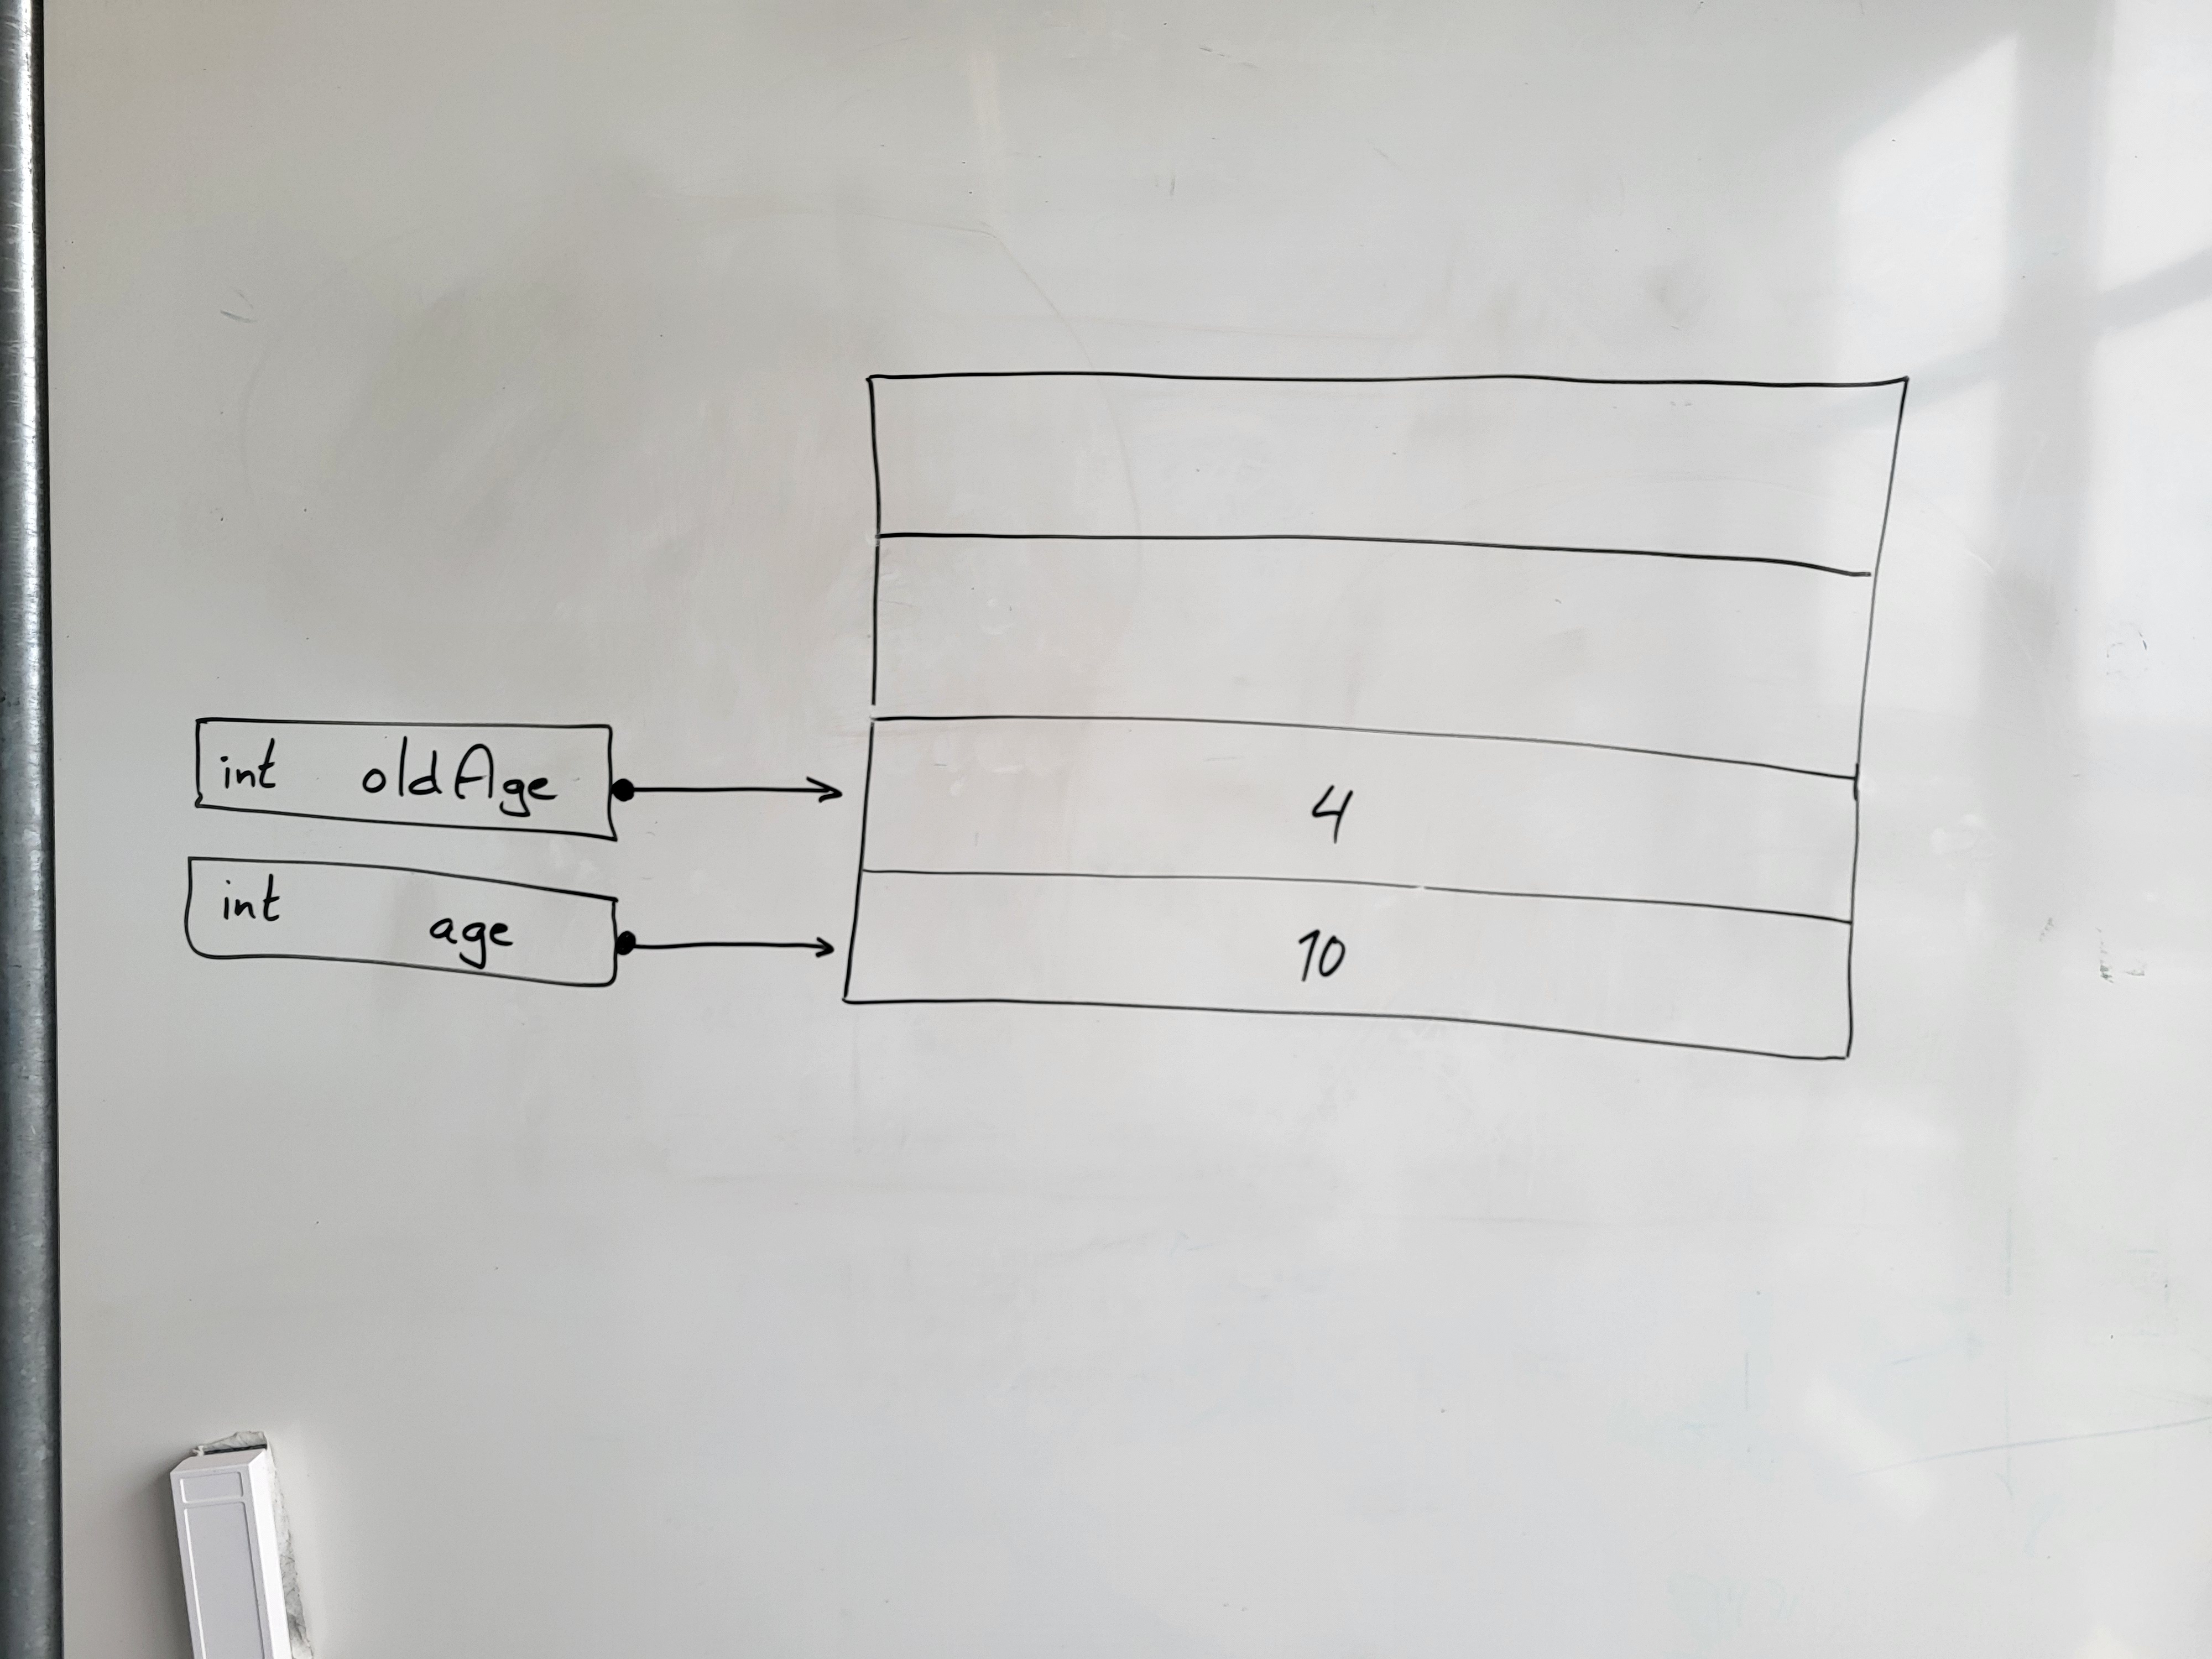 int oldAge
4
int age
10